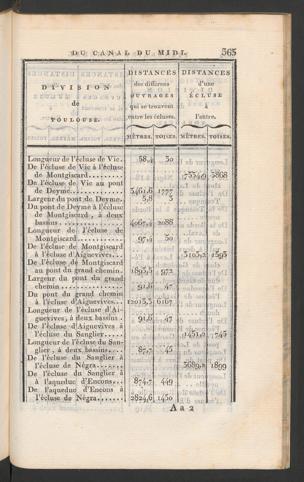 DU CANAL DU MIDI. 365
DIVISION
de
TOULOUSE.
DISTANCES
des différens
OUVRAGES
qui se trouvent
entre les écluses.
DISTANCES
d'une
ECLUSE
à
l'autre.
MÈTRES. TOISES. MÈTRES. TOISES.
Longueur de l'écluse de Vic. 58,4 30
De l'écluse de Vic à l'écluse
de Montgiscard 3868
De l'écluse de Vic au pont
de Deyme 3461,6 1777
Largeur du pont de Deyme. 5,8 3
Du pont de Deyme à l'écluse
de Montgiscard, à deux
bassins 2088
Longueur de l'écluse de
Montgiscard 97,4 50
De l'écluse de Montgiscard
à l'écluse d'Aiguevives
De l'écluse de Montgiscard
au pont du grand chemin. 972
Largeur du pont du grand
chemin 91,6 47
Du pont du grand chemin
à l'écluse d'Aiguevives
Longueur de l'écluse d'Ai-
guevives, à deux bassins 91,6 47
De l'écluse d'Aiguevives à
l'écluse du Sanglier 745
Longueur de l'écluse du San-
glier, à deux bassins 87,7 45
De l'écluse du Sanglier à
l'écluse de Négra 1899
De l'écluse du Sanglier à
à l'aqueduc d'Encons 874,7 449
De l'aqueduc d'Encons à
l'écluse de Négra 2824,6 1450
A a 2